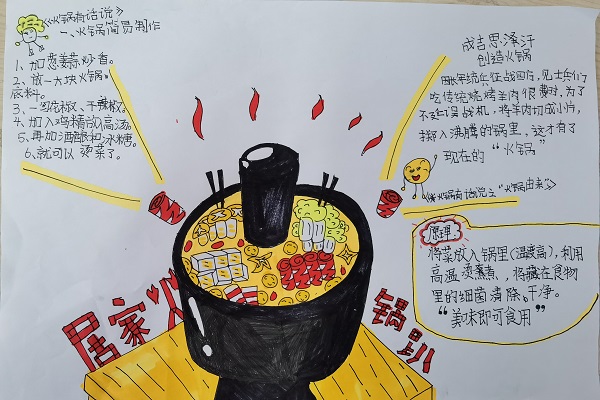 《火锅有话说》
一、火锅简易制作
1、加葱姜蒜炒香。
2、放一大块火锅
底料。
3、一把花椒、干辣椒。
4、加入鸡精放高汤。
5、再加酒酿和冰糖。
6、就可以烫菜了。
成吉思泽汗
创造火锅
因长年统兵征战四方,见士兵们
吃传统烧烤羊肉很费时,为了
不延误战机,将羊肉切成小片,
投入沸腾的锅里,这才有了
现在的“火锅”
《火锅有话说之“火锅由来”》
原理
将菜放入锅里(温度高),利用
高温烫蒸煮,将藏在食物
里的细菌清除。干净。
“美味即可食用”
居家火
锅趴